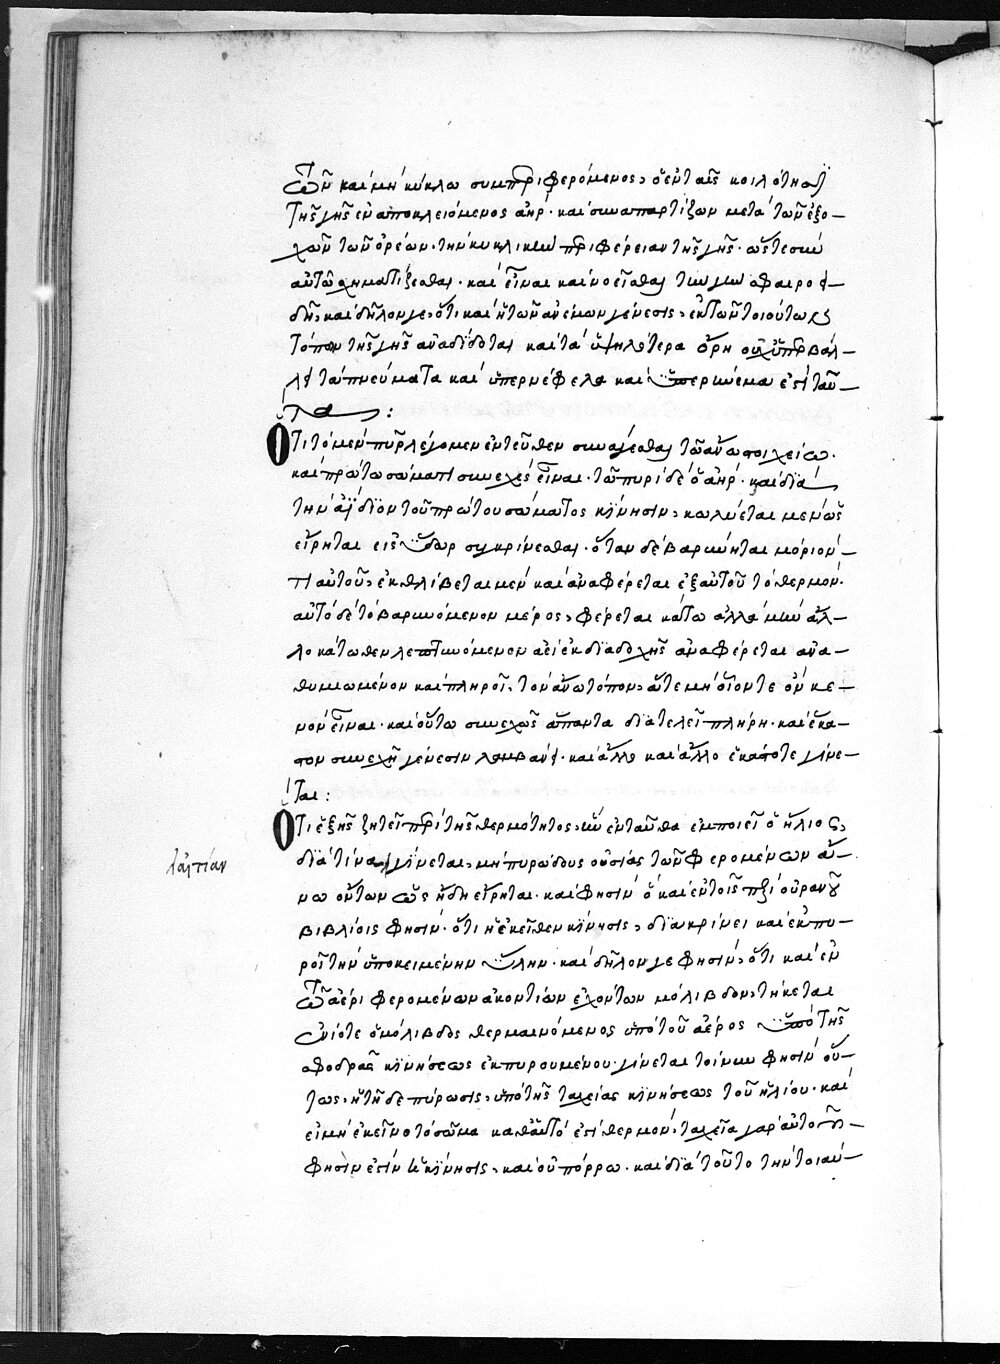 ὢν καὶ μὴ κύκλω συμπεριφερόμενος, ὁ ἐν ταῖς κοιλότησι
τῆς γῆς ἐναποκλειόμενος ἀήρ· καὶ συναπαρτίζων μετὰ τῶν ἐξο-
χῶν τῶν ὀρέων, τὴν κυκλικὴν περιφέρειαν τῆς γῆς· ὥστε σὺν
αὐτῶ σχηματίζεσθαι· καὶ εἶναι καὶ νοεῖσθαι τὴν γῆν σφαιροει-
δῆ· καὶ δῆλόν γε, ὅτι καὶ ἡ τῶν ἀνέμων γένεσις, ἐκ τῶν τοιούτων
τόπων τῆς γῆς ἀναδίδοται καὶ τὰ ὑψηλότερα ὄρη οὐχ ὑπερβάλ-
λει τὰ πνεύματα καὶ ὑπερνέφελα καὶ ὑπερήνεμα ἐστὶ ταῦ-
τα:
Ὅτι τὸ μὲν πῦρ λέγομεν ἐντεῦθεν συνάγεσθαι τῶ ἄνω στοιχείω·
καὶ πρώτω σώματι συνεχὲς εἶναι· τῶ πυρὶ δὲ ὁ ἀήρ· καὶ διὰ
τὴν ἀΐδιον τοῦ πρώτου σώματος κίνησιν, κωλύεται μὲν ὡς
εἴρηται εἰς ὕδωρ συγκρίνεσθαι· ὅταν δὲ βαρύνηται μόριόν
τι αὐτοῦ, ἐκθλίβεται μὲν καὶ ἀναφέρεται ἐξ αὐτοῦ τὸ θερμόν·
αὐτὸ δὲ τὸ βαρυνόμενον μέρος, φέρεται κάτω ἀλλὰ μὴν ἄλ-
λο κάτωθεν λεπτυνόμενον ἀεὶ ἐκ διαδοχῆς ἀναφέρεται ἀνα-
θυμιωμένον καὶ πληροῖ, τὸν ἄνω τόπον, ἅτε μὴ οἷόν τε ὂν κε-
νὸν εἶναι· καὶ οὕτω συνεχῶς ἅπαντα διατελεῖ πλήρη· καὶ ἕκα-
στον συνεχῆ γένεσιν λαμβάνει· καὶ ἄλλο καὶ ἄλλο ἑκάστοτε γίνε-
ται:
Ὅτι ἑξῆς ζητεῖ περὶ τῆς θερμότητος, ἣν ἐνταῦθα ἐμποιεῖ ὁ ἥλιος,
διατίνα γίνεται, μὴ πυρώδους οὐσίας τῶν φερομένων ἄ-
νω ὄντων ὡς ἤδη εἴρηται· καὶ φησὶν ὃ καὶ ἐν τοῖς περὶ οὐρανοῦ
βιβλίοις φησίν· ὅτι ἡ ἐκεῖθεν κίνησις, διακρίνει καὶ ἐκπυ-
ροῖ τὴν ὑποκειμένην ὕλην· καὶ δῆλόν γε φησίν, ὅτι καὶ ἐν
τῶ ἀέρι φερομένων ἀκοντίων ἐχόντων μόλιβδον, τήκεται
ἐνίοτε ὁ μόλιβδος θερμαινόμενος ὑπὸ τοῦ ἀέρος ὑπὸ τῆς
σφοδρᾶς κινήσεως ἐκπυρουμένου· γίνεται τοίνυν φησὶν οὕ-
τως, ἡ τῇδε πύρωσις, ὑπὸ τῆς ταχείας κινήσεως τοῦ ἡλίου· καὶ
εἰ μὴ ἐκεῖνο τὸ σῶμα καθαυτό ἐστι θερμόν, ταχεῖα γὰρ αὐτοῦ
φησὶν ἐστὶν ἡ κίνησις, καὶ οὐ πόρρω· καὶ διὰ τοῦτο τὴν τοιαύ-